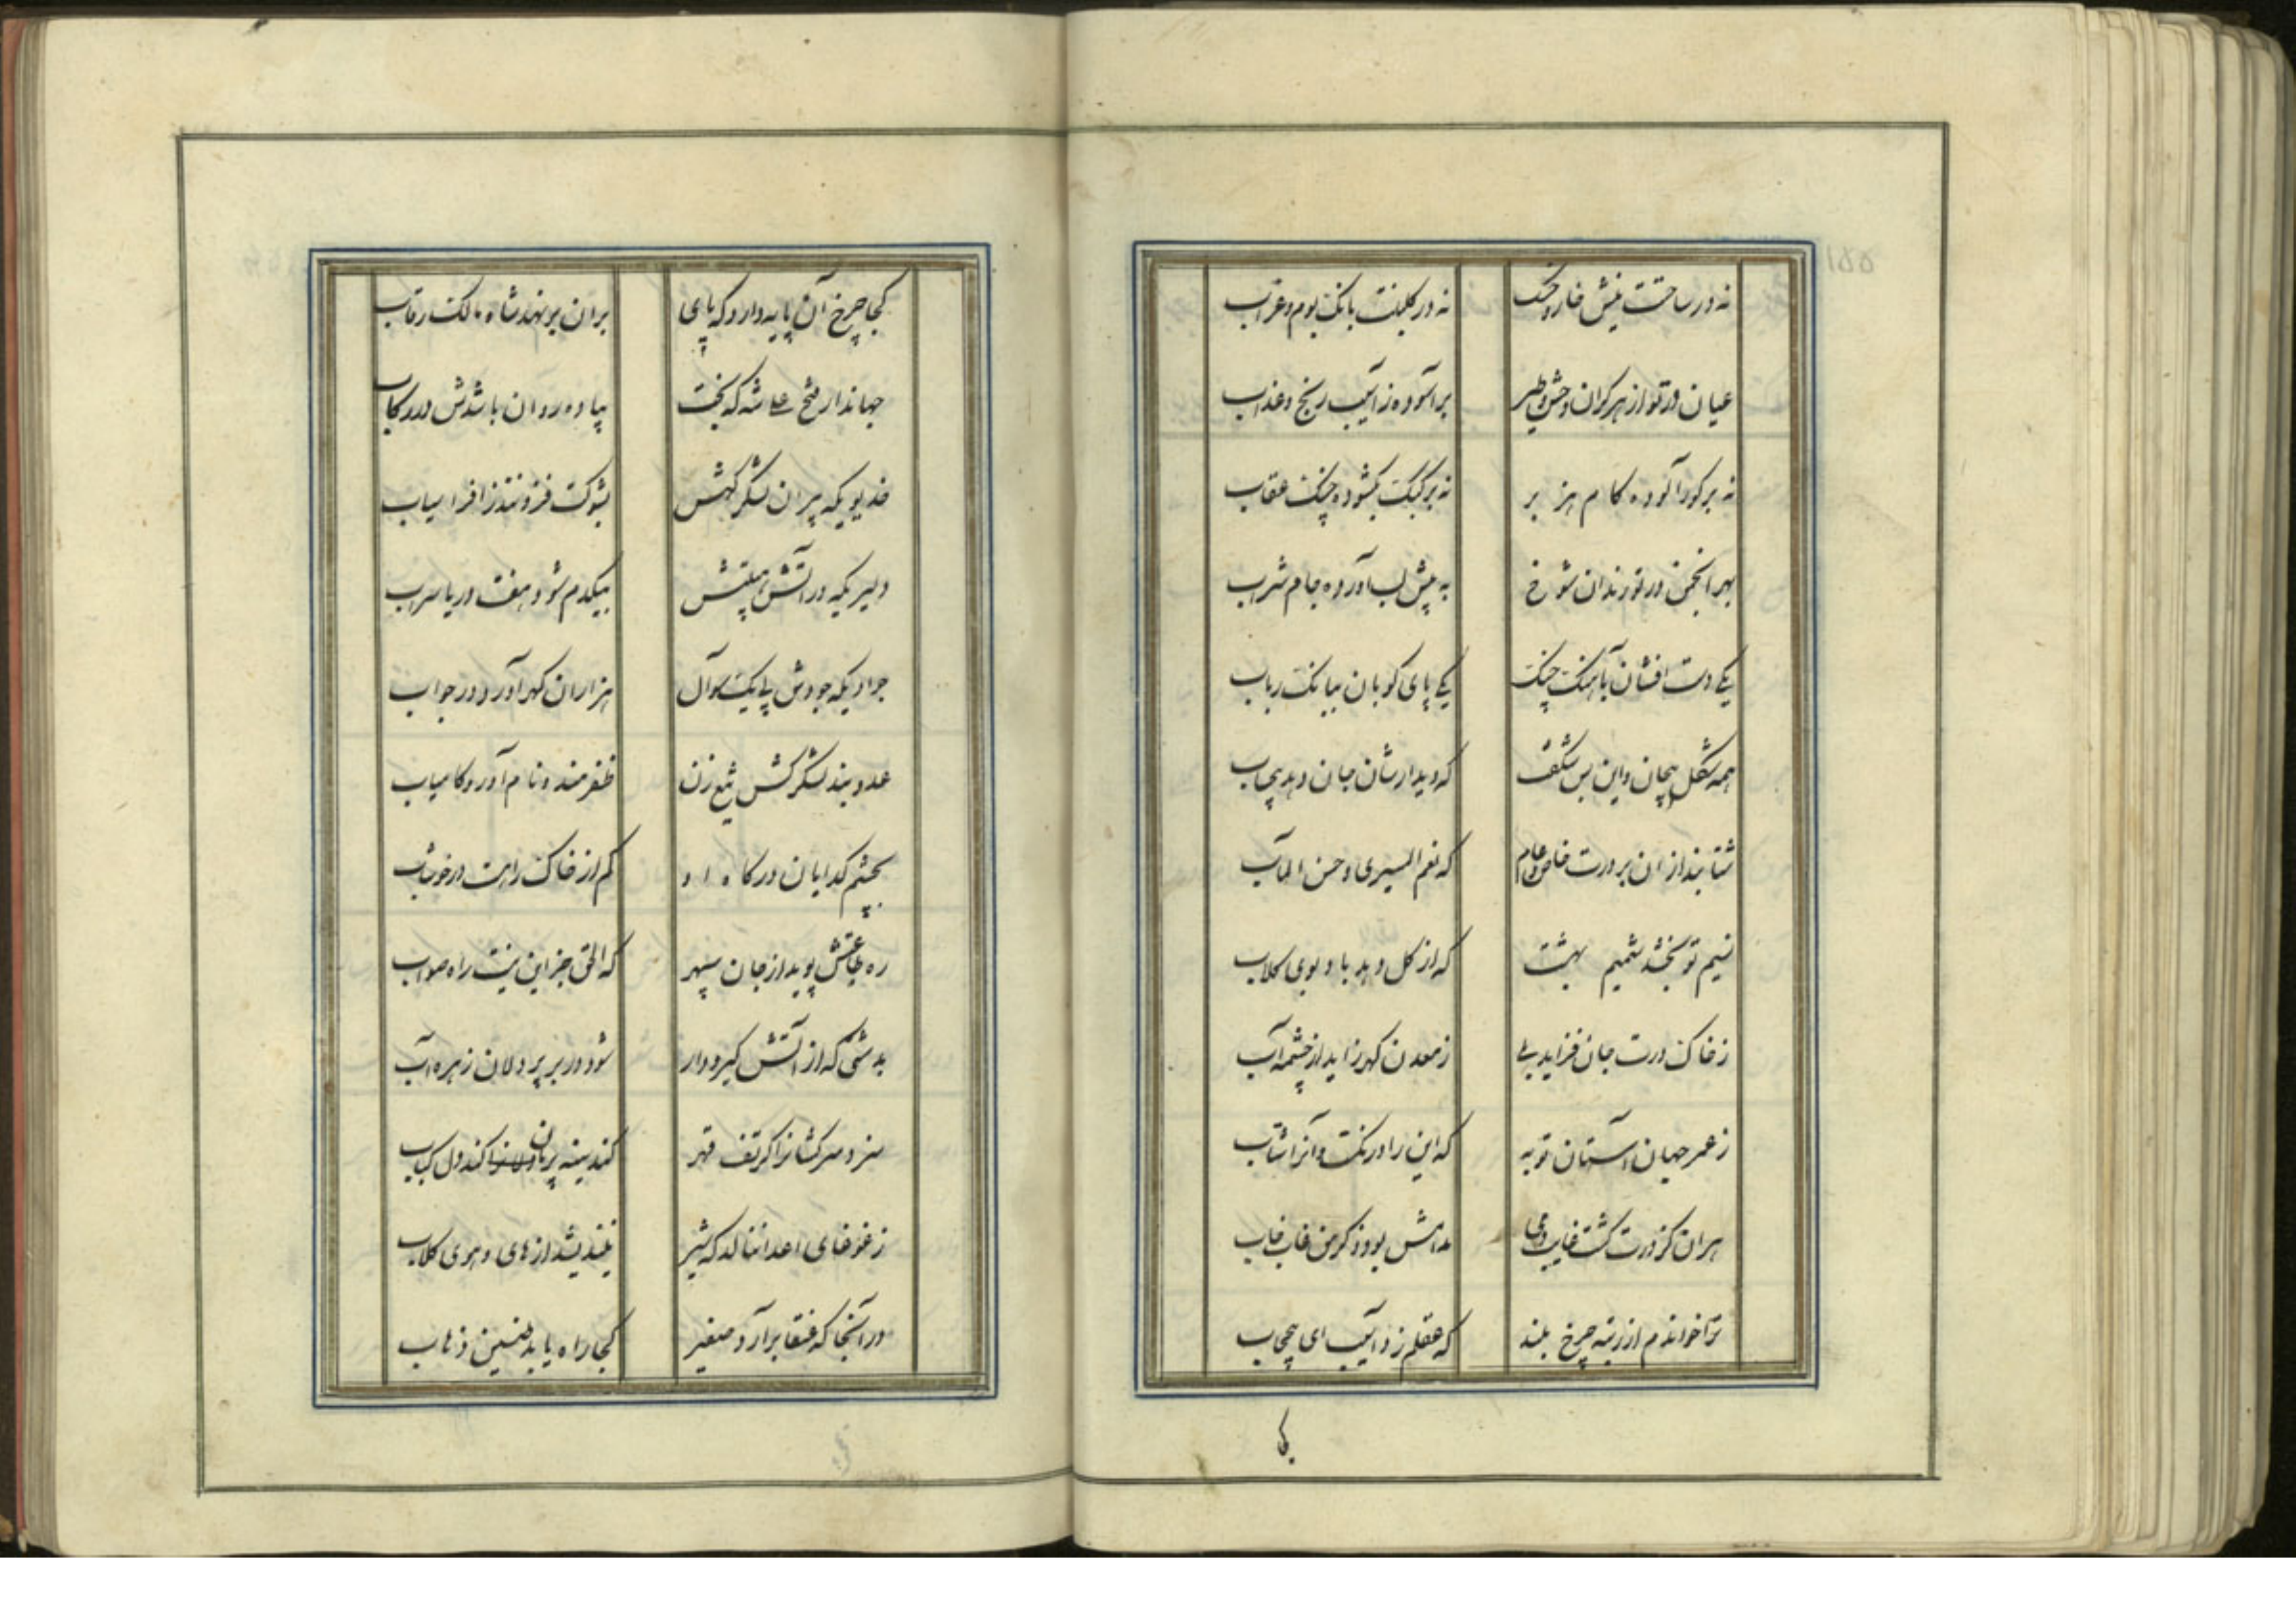 نه در ساحتت نیش خار و خسک
نه در گلبنت بانک بوم و غراب
عیان در تو از هر کران وحش و طیر
بر آسوده ز آسیب رنج و عذاب
نه بر کور آلوده کام هزبر
نه بر کبک بکشوده چنک عقاب
بهر انجمن در تو رندان شوخ
به پیش لب آورده جام شراب
یکی دست افشان بآهنک چنک
یکی پای کوبان ببانک رباب
همه شکل بیجان و این بس شکفت
که دیدارشان جان دهد بیحساب
شتابند از ان بر درت خاص و عام
که نعم المسیری و حسن المآب
نسیم تو بخشد شمیم بهشت
که از کل دهد باد بوی کلاب
ز خاک درت جان فزاید بلی
ز معدن کهر زاید از چشمه آب
ز عمر جهان آستان تو به
که این را درنک و آنرا شتاب
هر ان کز درت کشت غایب دمی
مدامش بود ذکر من غاب خاب
ترا خواندم از رتبه چرخ بلند
که عقلم زد آسیب ای بیحجاب
کجا
کجا چرخ آن پایه دارد که پای
بران بر نهد شاه مالک رقاب
جهاندار فتح علی شه که بخت
پیاده روان باشدش در رکاب
خدیویکه پیران لشکر کهش
بشوکت فزونند ز افراسیاب
دلیریکه در آتش هیبتش
بیکدم شود هفت دریا سراب
جوادیکه جودش پی یک سوآل
هزاران کهر آورد در جواب
عدوبند لشکرکش تیغ زن
ظفرمند و نام آور و کامیاب
بچشم کدایان درکاه او
کم از خاک راهست در خوشاب
ره طاعتش پوید از جان سپهر
که الحق جز این نیست راه صواب
بدشتی که از آتش کیر و دار
شود در بر پر دلان زهره آب
سزد سرکشانرا کر تف قهر
کند سینه بریان کند دل کباب
ز غوغای اعدا ننالد که شیر
نیندیشد از های و هوی کلاب
در آنجا که عنقا برآرد صفیر
کجا راه یابد طنین ذباب